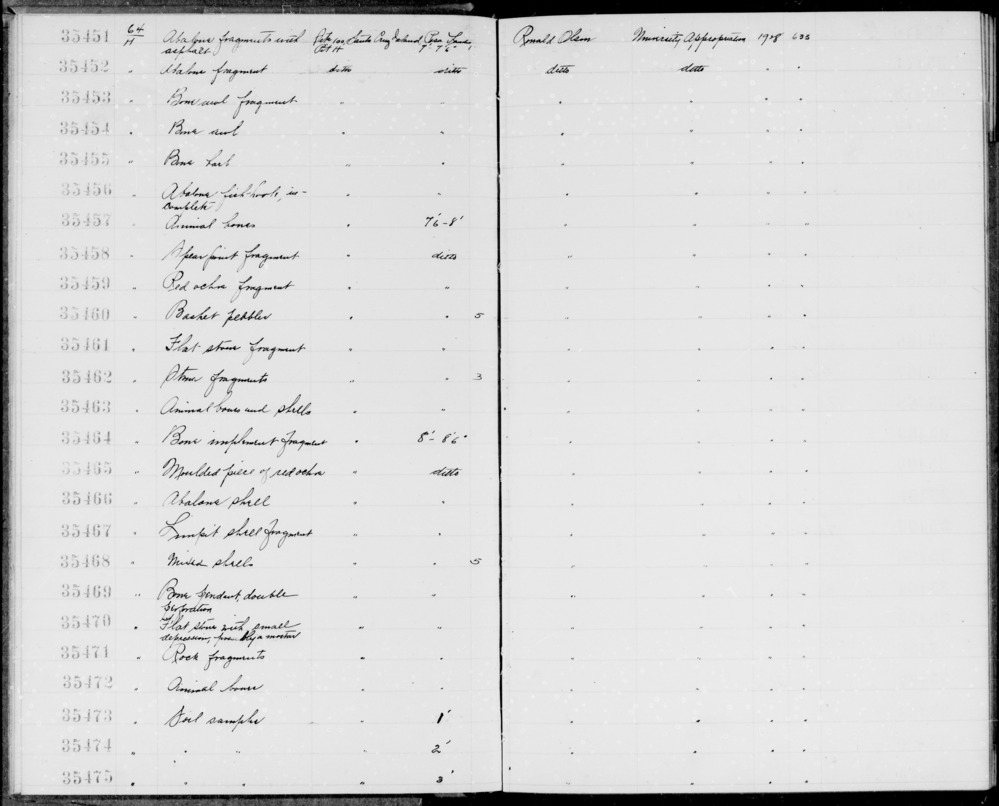 35451 64/11 Abalone fragments with Santa Cruz Island, Ronald Olson University Appropriation 1928 633
asphalt Pit H 7'-7'6"
35452 " Abalone fragment ditto ditto ditto ditto " "
35453 " Bone awl fragment " " " " " "
35454 " Bone awl " " " " " "
35455 " Bone barb " " " " " "
35456 " Abalone fish-hook, in- " " " " " "
complete
35457 " Animal bones " 7'6-8' " " " "
35458 " Spear point fragment " ditto " " " "
35459 " Red ochre fragment " " " " " "
35460 " Basket pebbles " " 5 " " " "
35461 " Flat stone fragment " " " " " "
35462 " Stone fragments " " 3 " " " "
35463 " Animal bones and shells " " " " " "
35464 " Bone implement fragment " 8'-8'6" " " " "
35465 " Moulded piece of red ochre " ditto " " " "
35466 " Abalone shell " " " " " "
35467 " Limpit shell fragment " " " " " "
35468 " Mixed shells " " 5 " " " "
35469 " Bone pendant, double " " " " " "
perforation
35470 " Flat stone with small " " " " " "
depression, possibly a mortar
35471 " Rock fragments " " " " " "
35472 " Animal bones " " " " " "
35473 " Soil sample " 1' " " " "
35474 " " " " 2' " " " "
35475 " " " " 3' " " " "